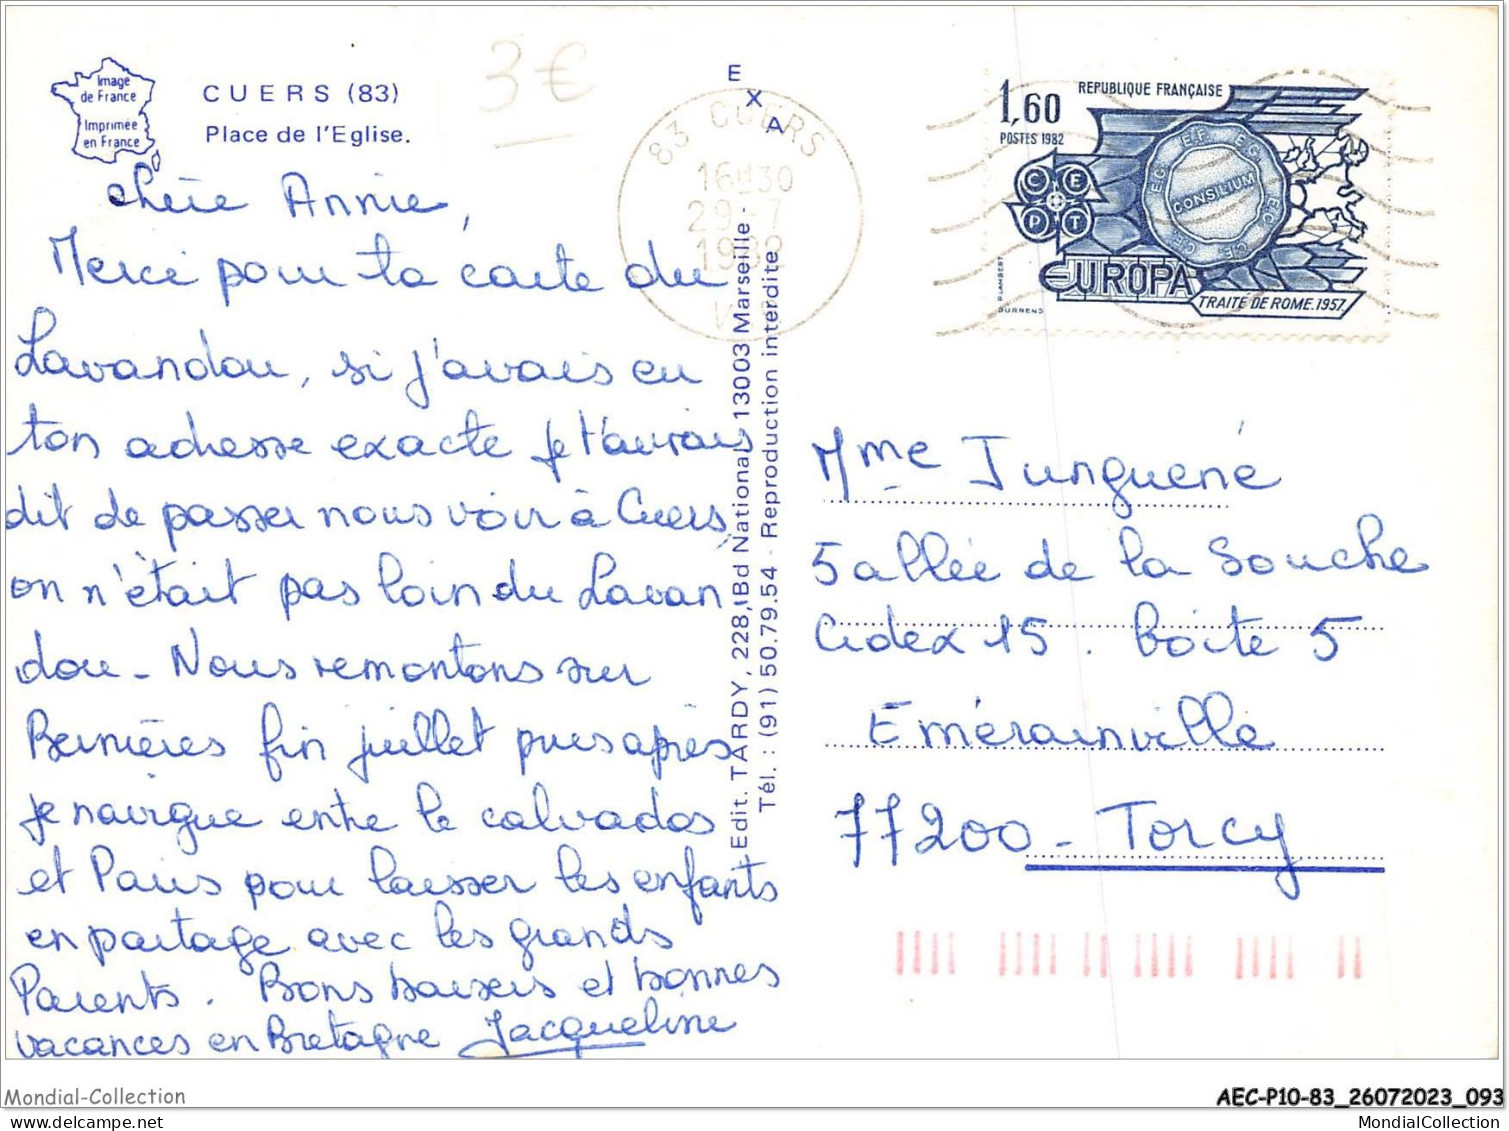 Image
de France
Imprimée
en France
CUERS (83)
Place de l'Eglise.
3€
EXA
83 CUERS
16H30
29-7
1982
REPUBLIQUE FRANÇAISE
1,60
POSTES 1982
CEPT
CONSILIUM
EUROPA
TRAITÉ DE ROME.1957
P.LAMBERT
DURRENS
chère Annie,
Merci pour ta carte du
Lavandou, si j'avais eu
ton adresse exacte je t'aurais
dit de passer nous voir à Cuers
on n'était pas loin du Lavan
dou - Nous remontons sur
Bernières fin juillet puis après
je navigue entre le calvados
et Paris pour laisser les enfants
en partage avec les grands
Parents. Bons baisers et bonnes
vacances en Bretagne Jacqueline
Edit. TARDY, 228, Bd National, 13003 Marseille -
Tél. : (91) 50.79.54 - Reproduction interdite
Mme Junguené
5 allée de la Souche
Cidex 15. boite 5
Emérainville
77200 - Torcy
Mondial-Collection
AEC-P10-83_26072023_093
www.delcampe.net
MondialCollection